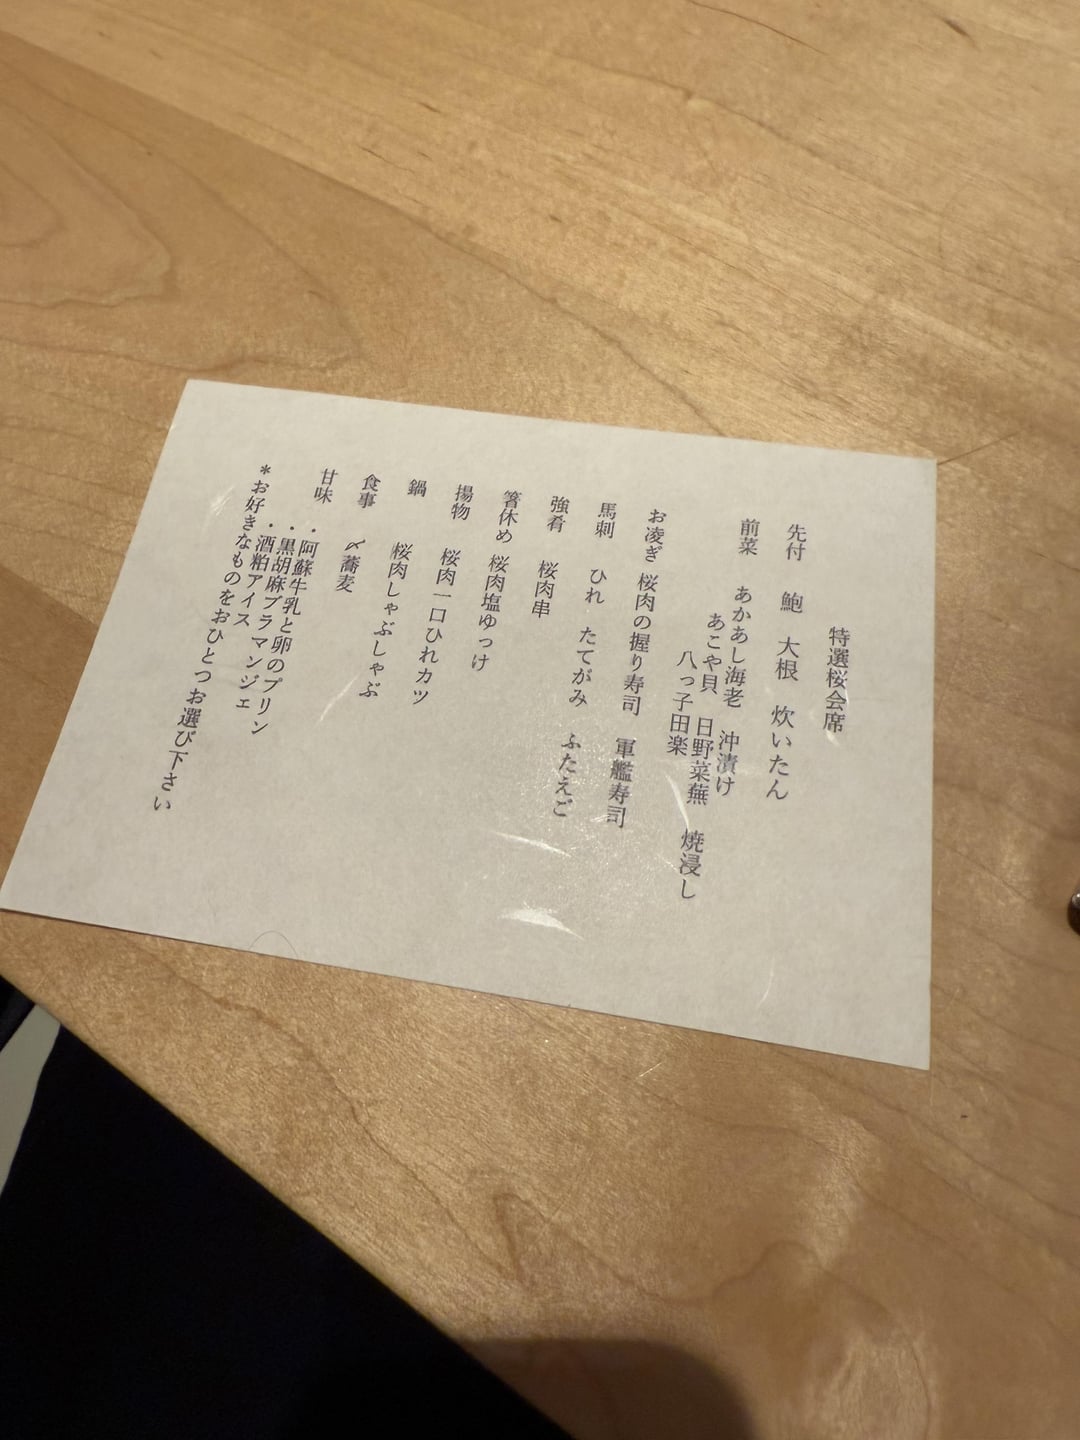 特選桜会席
先付　鮑　大根　炊いたん
前菜　あかあし海老　沖漬け
あこや貝　日野菜蕪　焼浸し
八っ子田楽
お凌ぎ　桜肉の握り寿司　軍艦寿司
馬刺　ひれ　たてがみ　ふたえご
強肴　桜肉串
箸休め　桜肉塩ゆっけ
揚物　桜肉一口ひれカツ
鍋　桜肉しゃぶしゃぶ
食事　〆蕎麦
甘味　・阿蘇牛乳と卵のプリン
・黒胡麻ブラマンジェ
・酒粕アイス
＊お好きなものをおひとつお選び下さい